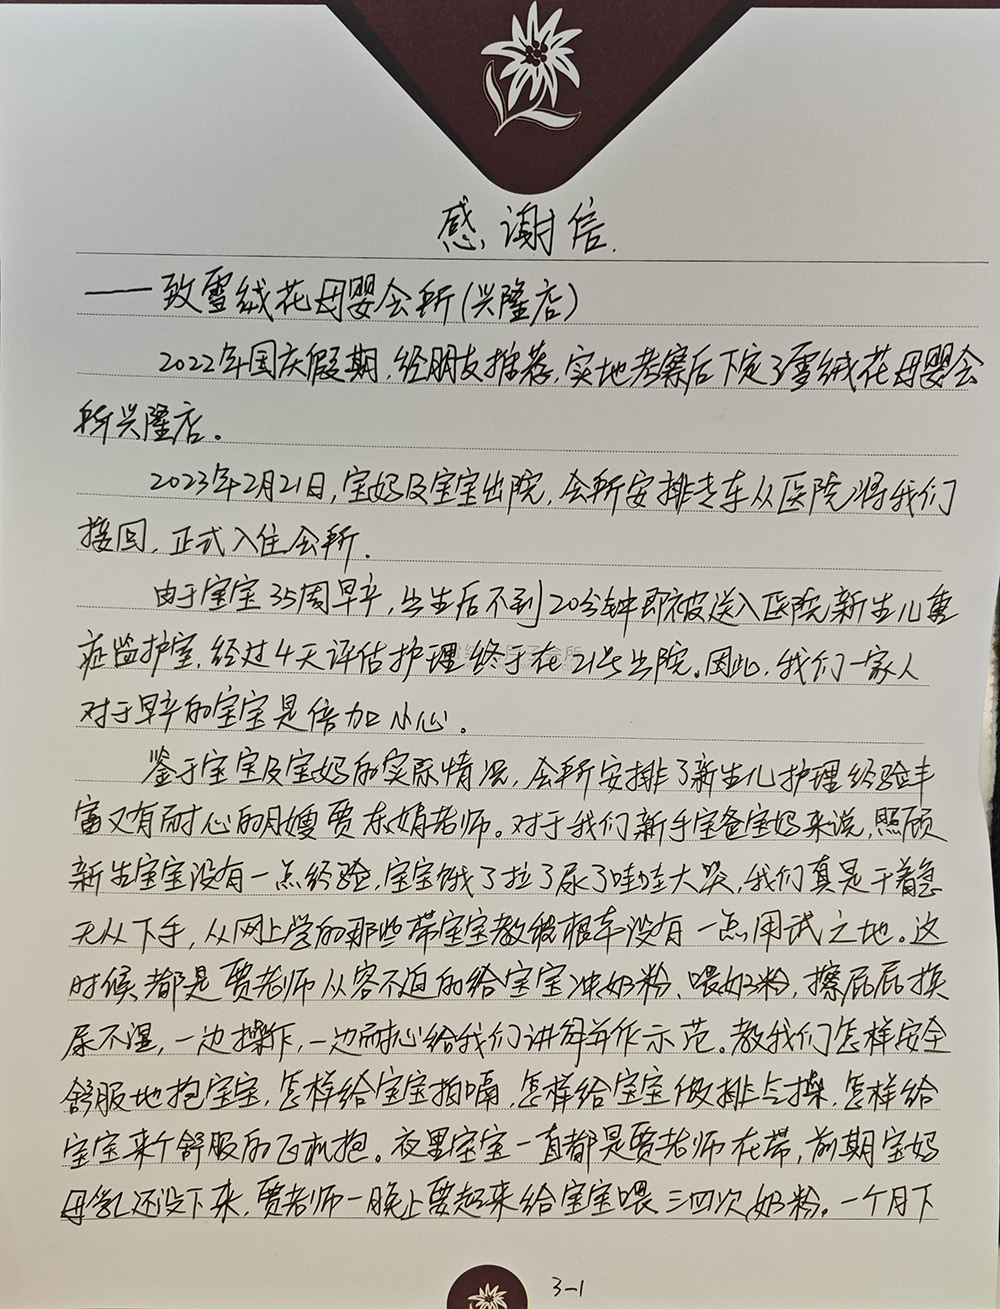 感谢信
——致雪绒花母婴会所(兴隆店)
2022年国庆假期,经朋友推荐,实地考察后下定了雪绒花母婴会
所兴隆店。
2023年2月21日,宝妈及宝宝出院,会所安排专车从医院将我们
接回,正式入住会所.
由于宝宝35周早产,出生后不到20分钟即被送入医院新生儿重
症监护室,经过4天评估护理终于在21号出院。因此,我们一家人
对于早产的宝宝是倍加小心。
鉴于宝宝及宝妈的实际情况,会所安排了新生儿护理经验丰
富又有耐心的月嫂贾东娟老师。对于我们新手宝爸宝妈来说,照顾
新生宝宝没有一点经验,宝宝饿了拉了尿了哇哇大哭,我们真是干着急
无从下手,从网上学的那些带宝宝教程根本没有一点用武之地。这
时候都是贾老师从容不迫的给宝宝冲奶粉、喂奶粉,擦屁屁换
尿不湿,一边操作,一边耐心给我们讲解并作示范。教我们怎样安全
舒服地抱宝宝,怎样给宝宝拍嗝,怎样给宝宝做排气操,怎样给
宝宝来个舒服的飞机抱。夜里宝宝一直都是贾老师在带,前期宝妈
母乳还没下来,贾老师一晚上要起来给宝宝喂三四次奶粉。一个月下
3-1